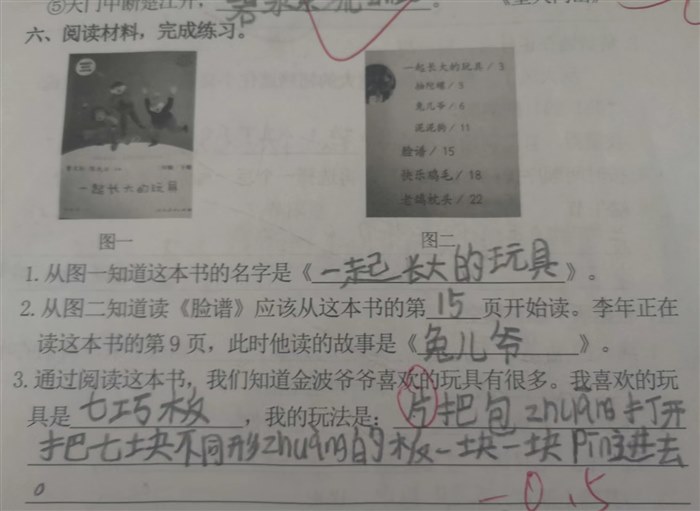 ⑤天门中断楚江开，
六、阅读材料，完成练习。
三
一起长大的玩具
图一
一起长大的玩具/3
抽陀螺/3
兔儿爷/6
泥泥狗/11
脸谱/15
快乐鸡毛/18
老鸹枕头/22
图二
1.从图一知道这本书的名字是《一起长大的玩具》。
2.从图二知道读《脸谱》应该从这本书的第15页开始读。李年正在
读这本书的第9页，此时他读的故事是《兔儿爷》。
3.通过阅读这本书，我们知道金波爷爷喜欢的玩具有很多。我喜欢的玩
具是七巧板，我的玩法是：片把包zhuang打开
把七块不同形zhuang的板一块一块Pin进去
。
-0.5